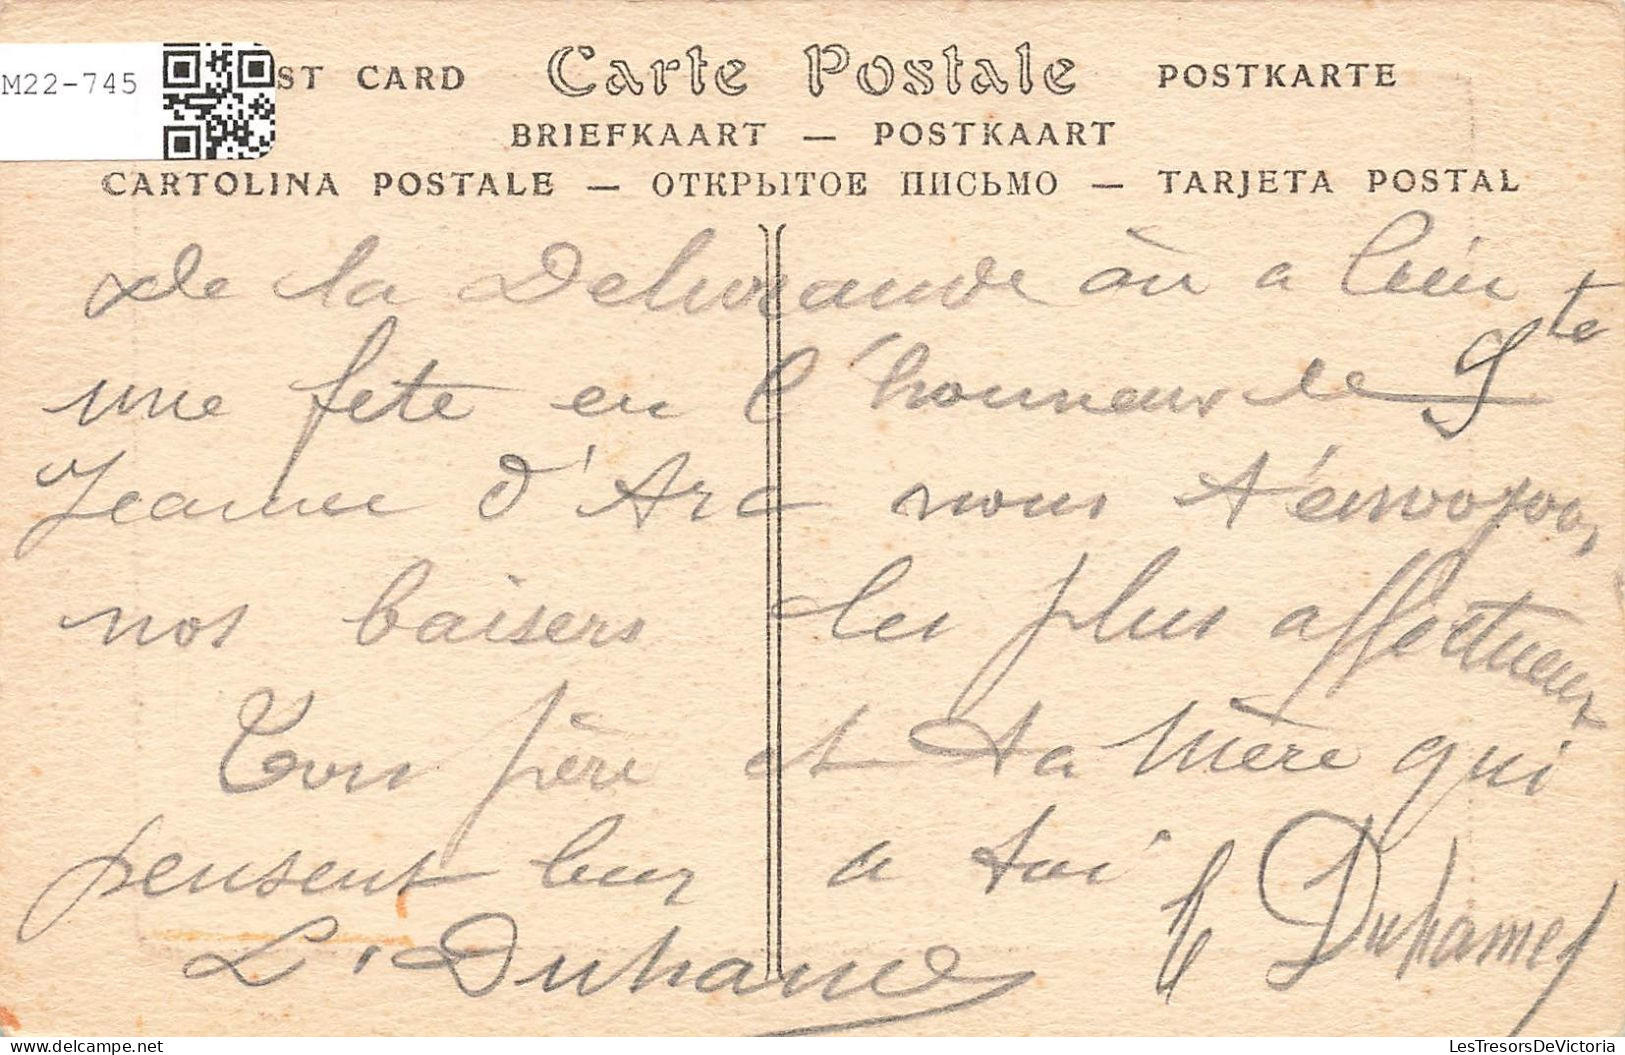 M22-745
ST CARD Carte Postale POSTKARTE
BRIEFKAART — POSTKAART
CARTOLINA POSTALE — ОТКРЫТОЕ ПИСЬМО — TARJETA POSTAL
de la Delivrande où a lieu
une fete en l'honneur de Ste
Jeanne d'Arc nous t'envoyons
nos baisers les plus affectueux
Ton père et ta mère qui
pensent a toi
L. Duhamel Duhamel
LesTresorsDeVictoria